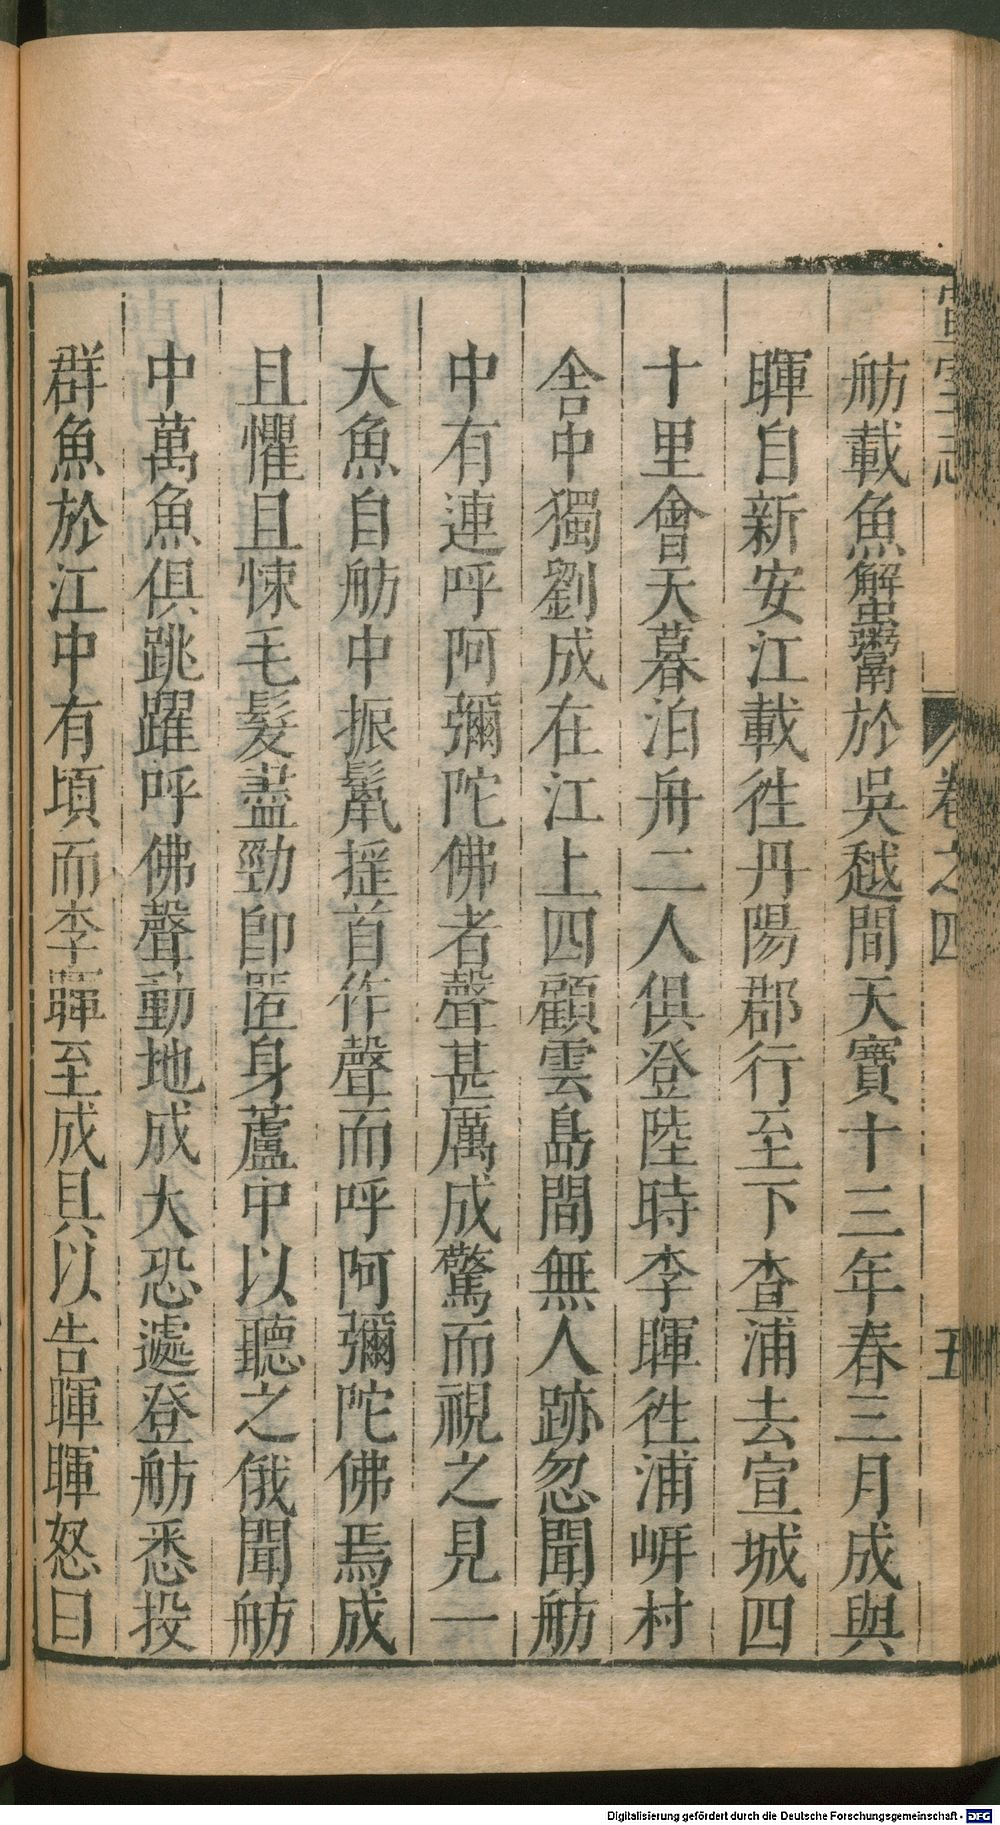 宣室志 卷之四 五
舫載魚蟹鬻於吳越間天寶十三年春三月成與
暉自新安江載徃丹陽郡行至下查浦去宣城四
十里會天暮泊舟二人俱登陸時李暉徃浦㟁村
舍中獨劉成在江上四顧雲島間無人跡忽聞舫
中有連呼阿彌陀佛者聲甚厲成驚而視之見一
大魚自舫中振鬛揺首作聲而呼阿彌陀佛焉成
且懼且悚毛髮盡勁卽匿身蘆中以聽之俄聞舫
中萬魚俱跳躍呼佛聲動地成大恐遽登舫悉投
群魚於江中有頃而李暉至成具以告暉暉怒曰
Digitalisierung gefördert durch die Deutsche Forschungsgemeinschaft - DFG